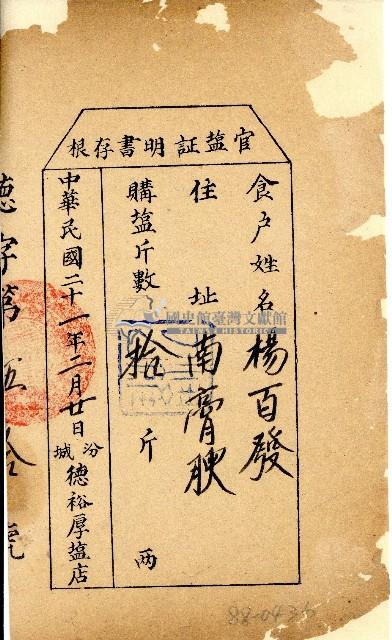 官塩証明書存根
食户姓名 楊百發
住址 南膏腴
購塩斤數 拾斤 两
中華民國二十一年二月廿日汾城德裕厚塩店
德字第伍拾號
國史館臺灣文獻館
TAIWAN HISTORICA
88-0436